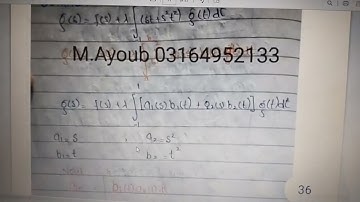 g(s) = f(s) + λ ∫ (st + s²t²) g(t) dt
M.Ayoub 03164952133
g(s) = f(s) + λ ∫ [a₁(s) b₁(t) + a₂(s) b₂(t)] g(t) dt
a₁ = s a₂ = s²
b₁ = t b₂ = t²
36